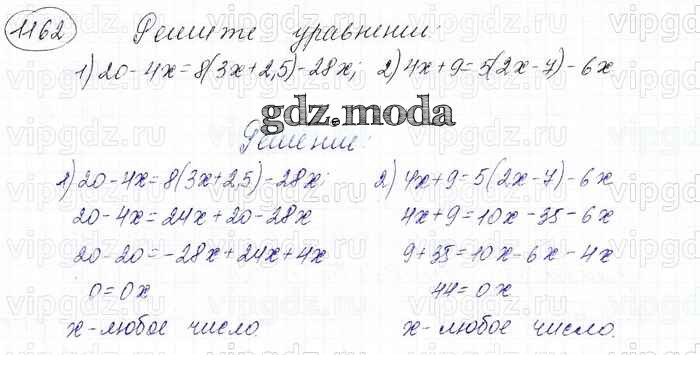 1162 Решите уравнении:
1) 20-4x=8(3x+2,5)-28x; 2) 4x+9=5(2x-7)-6x
gdz.moda
Решение:
1) 20-4x=8(3x+2,5)-28x;
20-4x=24x+20-28x
20-20=-28x+24x+4x
0=0x
x-любое число.
2) 4x+9=5(2x-7)-6x
4x+9=10x-35-6x
9+35=10x-6x-4x
44=0x
x-любое число.
vipgdz.ru